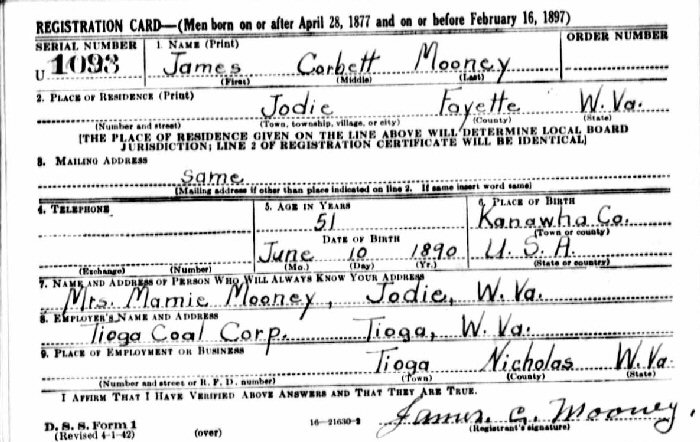 REGISTRATION CARD—(Men born on or after April 28, 1877 and on or before February 16, 1897)
SERIAL NUMBER 1. NAME (Print) ORDER NUMBER
U 1093 James Corbett Mooney
(First) (Middle) (Last)
2. PLACE OF RESIDENCE (Print)
Jodie Fayette W. Va.
(Number and street) (Town, township, village, or city) (County) (State)
[THE PLACE OF RESIDENCE GIVEN ON THE LINE ABOVE WILL DETERMINE LOCAL BOARD
JURISDICTION; LINE 2 OF REGISTRATION CERTIFICATE WILL BE IDENTICAL]
3. MAILING ADDRESS
Same
(Mailing address if other than place indicated on line 2. If same insert word same)
4. TELEPHONE 5. AGE IN YEARS 6. PLACE OF BIRTH
51 Kanawha Co.
DATE OF BIRTH (Town or county)
June 10 1890 U. S. A.
(Exchange) (Number) (Mo.) (Day) (Yr.) (State or country)
7. NAME AND ADDRESS OF PERSON WHO WILL ALWAYS KNOW YOUR ADDRESS
Mrs. Mamie Mooney, Jodie, W. Va.
8. EMPLOYER'S NAME AND ADDRESS
Tioga Coal Corp. Tioga, W. Va.
9. PLACE OF EMPLOYMENT OR BUSINESS
Tioga Nicholas W. Va.
(Number and street or R. F. D. number) (Town) (County) (State)
I AFFIRM THAT I HAVE VERIFIED ABOVE ANSWERS AND THAT THEY ARE TRUE.
D. S. S. Form 1
(Revised 4-1-42) (over) 16—21630-2 James C. Mooney.
(Registrant's signature)